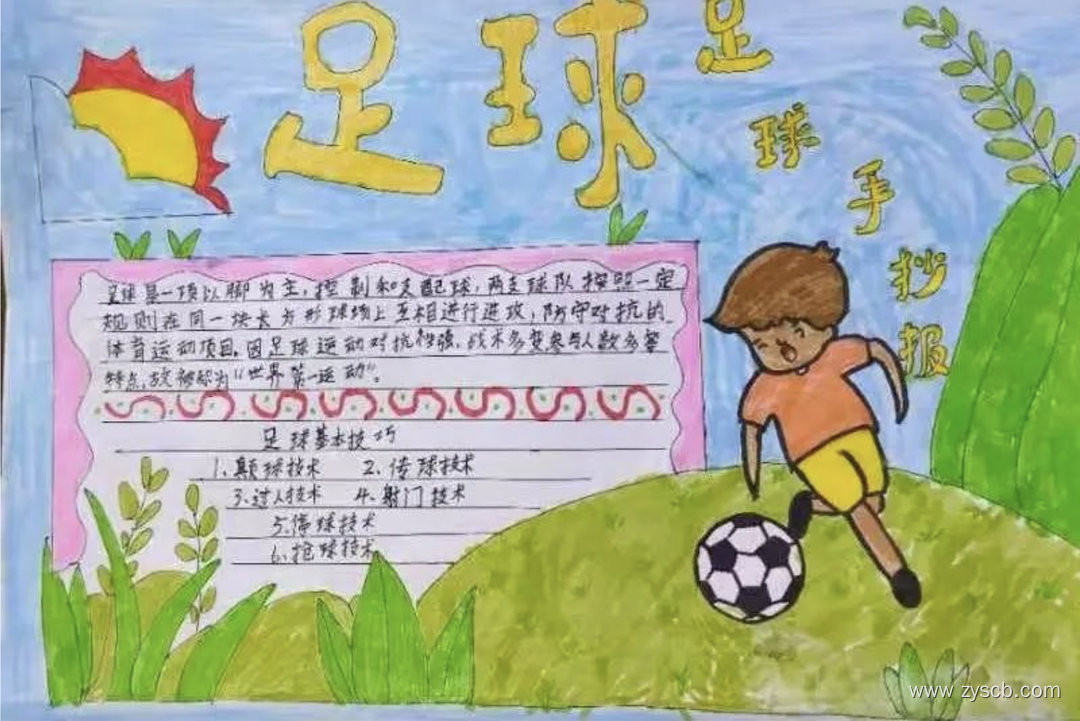 足球
足球手抄报
足球是一项以脚为主，控制和支配球，两支球队按照一定
规则在同一块长方形球场上互相进行进攻，防守对抗的
体育运动项目。因足球运动对抗性强、战术多变参与人数多等
特点，故被称为“世界第一运动”。
足球基本技巧
1、颠球技术 2、传球技术
3、过人技术 4、射门技术
5、停球技术
6、抢球技术
www.zyscb.com